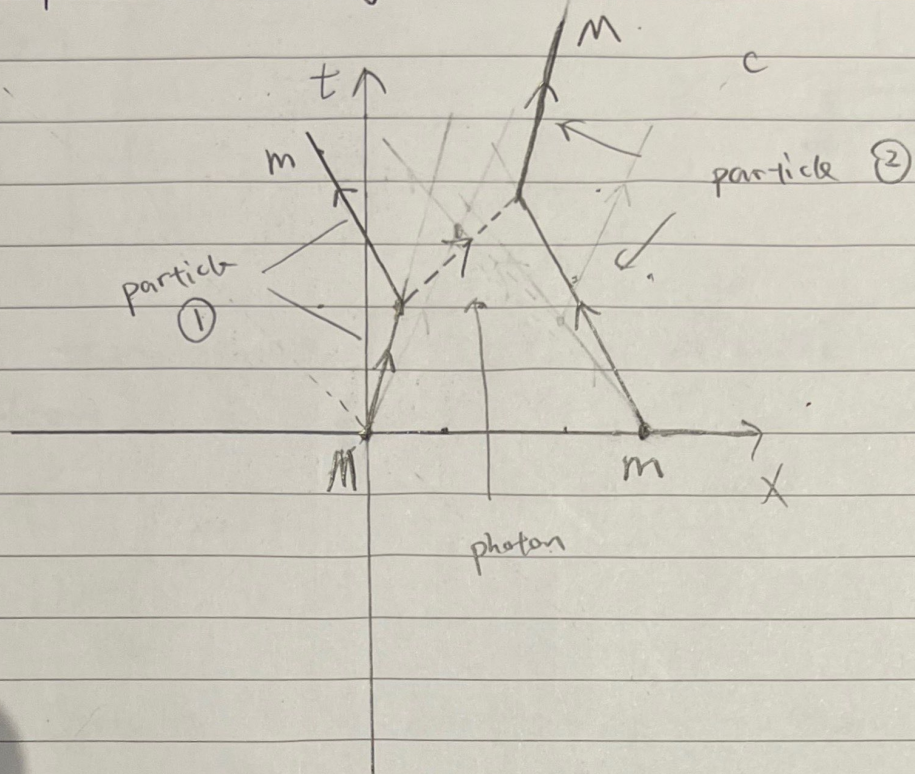 M
t
c
m
particle ②
particle
①
M
m
X
photon